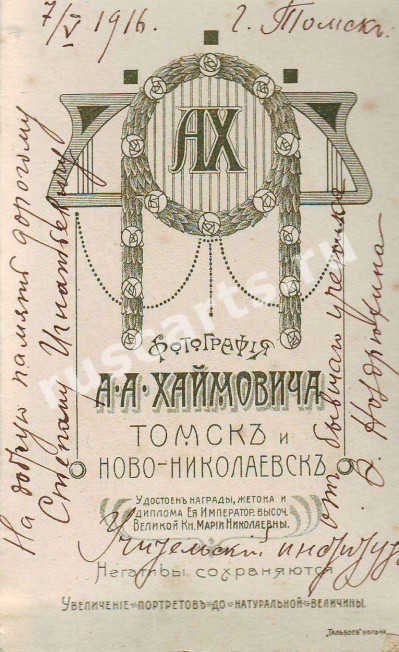 7/V 1916. г. Томскъ.
На добрую память дорогому
Степану Игнатьевичу
отъ бывшаго ученика
Учительскій институтъ
АХ
ФОТОГРАФІЯ
А·А·ХАЙМОВИЧА
ТОМСКЪ И
НОВО-НИКОЛАЕВСКЪ
УДОСТОЕНЪ НАГРАДЫ, ЖЕТОНА И
ДИПЛОМА ЕЯ ИМПЕРАТОР. ВЫСОЧ.
ВЕЛИКОЙ КН. МАРІИ НИКОЛАЕВНЫ.
НЕГАТИВЫ СОХРАНЯЮТСЯ
УВЕЛИЧЕНІЕ ПОРТРЕТОВЪ ДО НАТУРАЛЬНОЙ ВЕЛИЧИНЫ.
ruscarts.ru